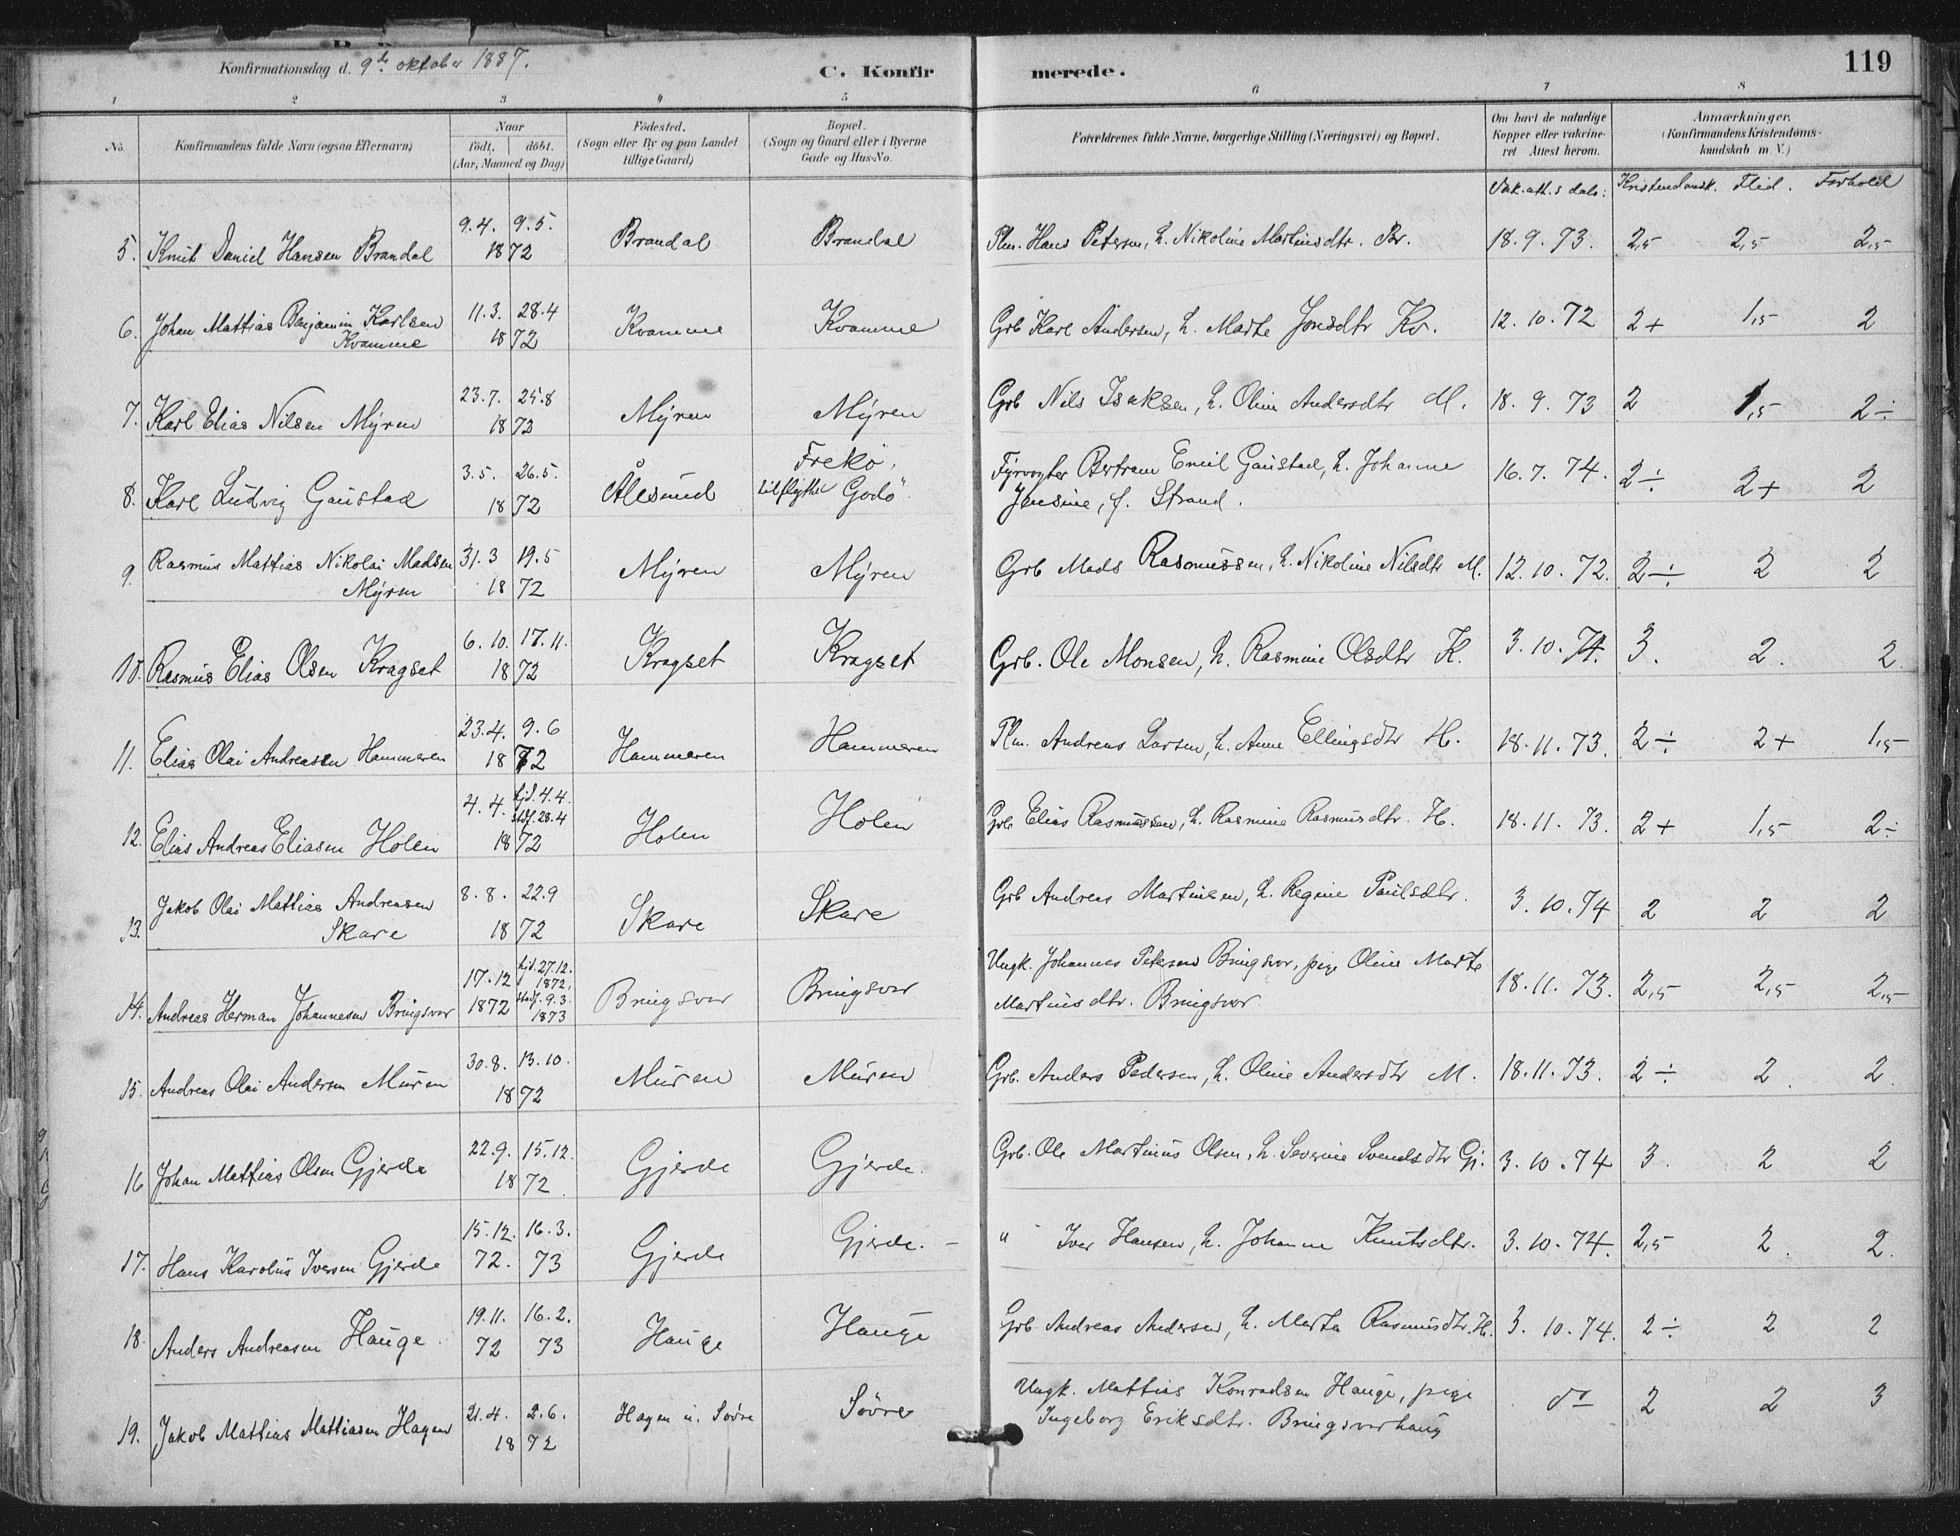 Konfirmationsdag d. 9de oktober 1887. C. Konfirmerede. 119
1 2 3 4 5 6 7 8
No. Konfirmandens fulde Navn (ogsaa Efternavn) Naar født. døbt. (Aar, Maaned og Dag) Födested. (Sogn eller By og paa Landet tillige Gaard) Bopæl. (Sogn og Gaard eller i Byerne Gade og Hus-No. Forældrenes fulde Navne, borgerlige Stilling (Næringsvei) og Bopæl. Om havt de naturlige Kopper eller vakcineret Attest herom. Anmærkninger. (Konfirmandens Kristendomskundskab m. V.)
Vak.att.s dato: Kristendomsk. Flid. Forhold
5. Knut Daniel Hansen Brandal 9.4. 9.5. 1872 Brandal Brandal Plm. Hans Petersen, h. Nikoline Martinsdtr. Br. 18.9.73. 2,5 2,5 2,5
6. Johan Mattias Benjamin Karlsen Kvamme 11.3. 28.4 1872 Kvamme Kvamme Grb Karl Andersen, h. Marte Jonsdtr Kv. 12.10.72 2+ 1,5 2
7. Karl Elias Nilsen Myren 23.7. 25.8 1872 Myren Myren Grb Nils Isaksen, h. Oline Andersdtr M. 18.9.73 2 1,5 2÷
8. Karl Ludvig Gaustad 3.5. 26.5. 1872 Ålesund Frekø, tilflyttet Godø. Fyrvogter Bertram Emil Gaustad, h. Johanne Jensine, f. Strand. 16.7.74. 2÷ 2+ 2
9. Rasmus Mattias Nikolai Madsen Myren 31.3 19.5 1872 Myren Myren Grb Mads Rasmussen, h. Nikoline Nilsdtr M. 12.10.72. 2÷ 2 2
10. Rasmus Elias Olsen Kragset 6.10. 17.11. 1872 Kragset Kragset Grb. Ole Monsen, h. Rasmine Olsdtr K. 3.10.74. 3. 2. 2.
11. Elias Olai Andreasen Hammeren 23.4. 9.6 1872 Hammeren Hammeren Plm. Andreas Larsen, h. Anne Ellingsdtr H. 18.11.73. 2÷ 2+ 1,5
12. Elias Andreas Eliasen Holen 4.4. hjd. 4.4. stdf. 28.4 1872 Holen Holen Grb Elias Rasmussen, h. Rasmine Rasmusdtr. H. 18.11.73. 2+ 1,5 2÷
13. Jakob Olai Mattias Andreasen Skare 8.8. 22.9 1872 Skare Skare Grb Andreas Martinsen, h. Regine Paulsdtr. 3.10.74 2 2 2
14. Andreas Herman Johannesen Bringsvor 17.12 1872 hjd. 27.12. 1872, stadf. 9.3. 1873 Bringsvor Bringsvor Ungk. Johannes Petersen Bringsvor, pige Oline Marte Martinsdtr. Bringsvor 18.11.73. 2,5 2,5 2,5
15. Andreas Olai Andersen Muren 30.8. 13.10. 1872 Muren Muren Grb. Anders Pedersen, h. Oline Andersdtr M. 18.11.73. 2÷ 2. 2.
16 Johan Mattias Olsen Gjerde 22.9. 15.12. 1872. Gjerde Gjerde. Grb. Ole Martinus Olsen, h. Severine Svendsdtr Gj. 3.10.74 3. 2 2
17. Hans Karolus Iversen Gjerde 15.12. 72. 16.3. 73 Gjerde Gjerde. " Iver Hansen, h. Johanne Knutsdtr. 3.10.74. 2,5 2. 2.
18. Anders Andreasen Hauge. 19.11. 72 16.2. 73 Hauge Hauge Grb Andreas Andersen, h. Marta Rasmusdtr. H. 3.10.74. 2÷ 2 2
19. Jakob Mattias Mattiasen Hagen 21.4. 2.6. 1872 Hagen u. Søvre Søvre Ungk. Mattias Konradsen Hauge, pige Ingeborg Eriksdtr. Bringsvorhaug do 2 2 3